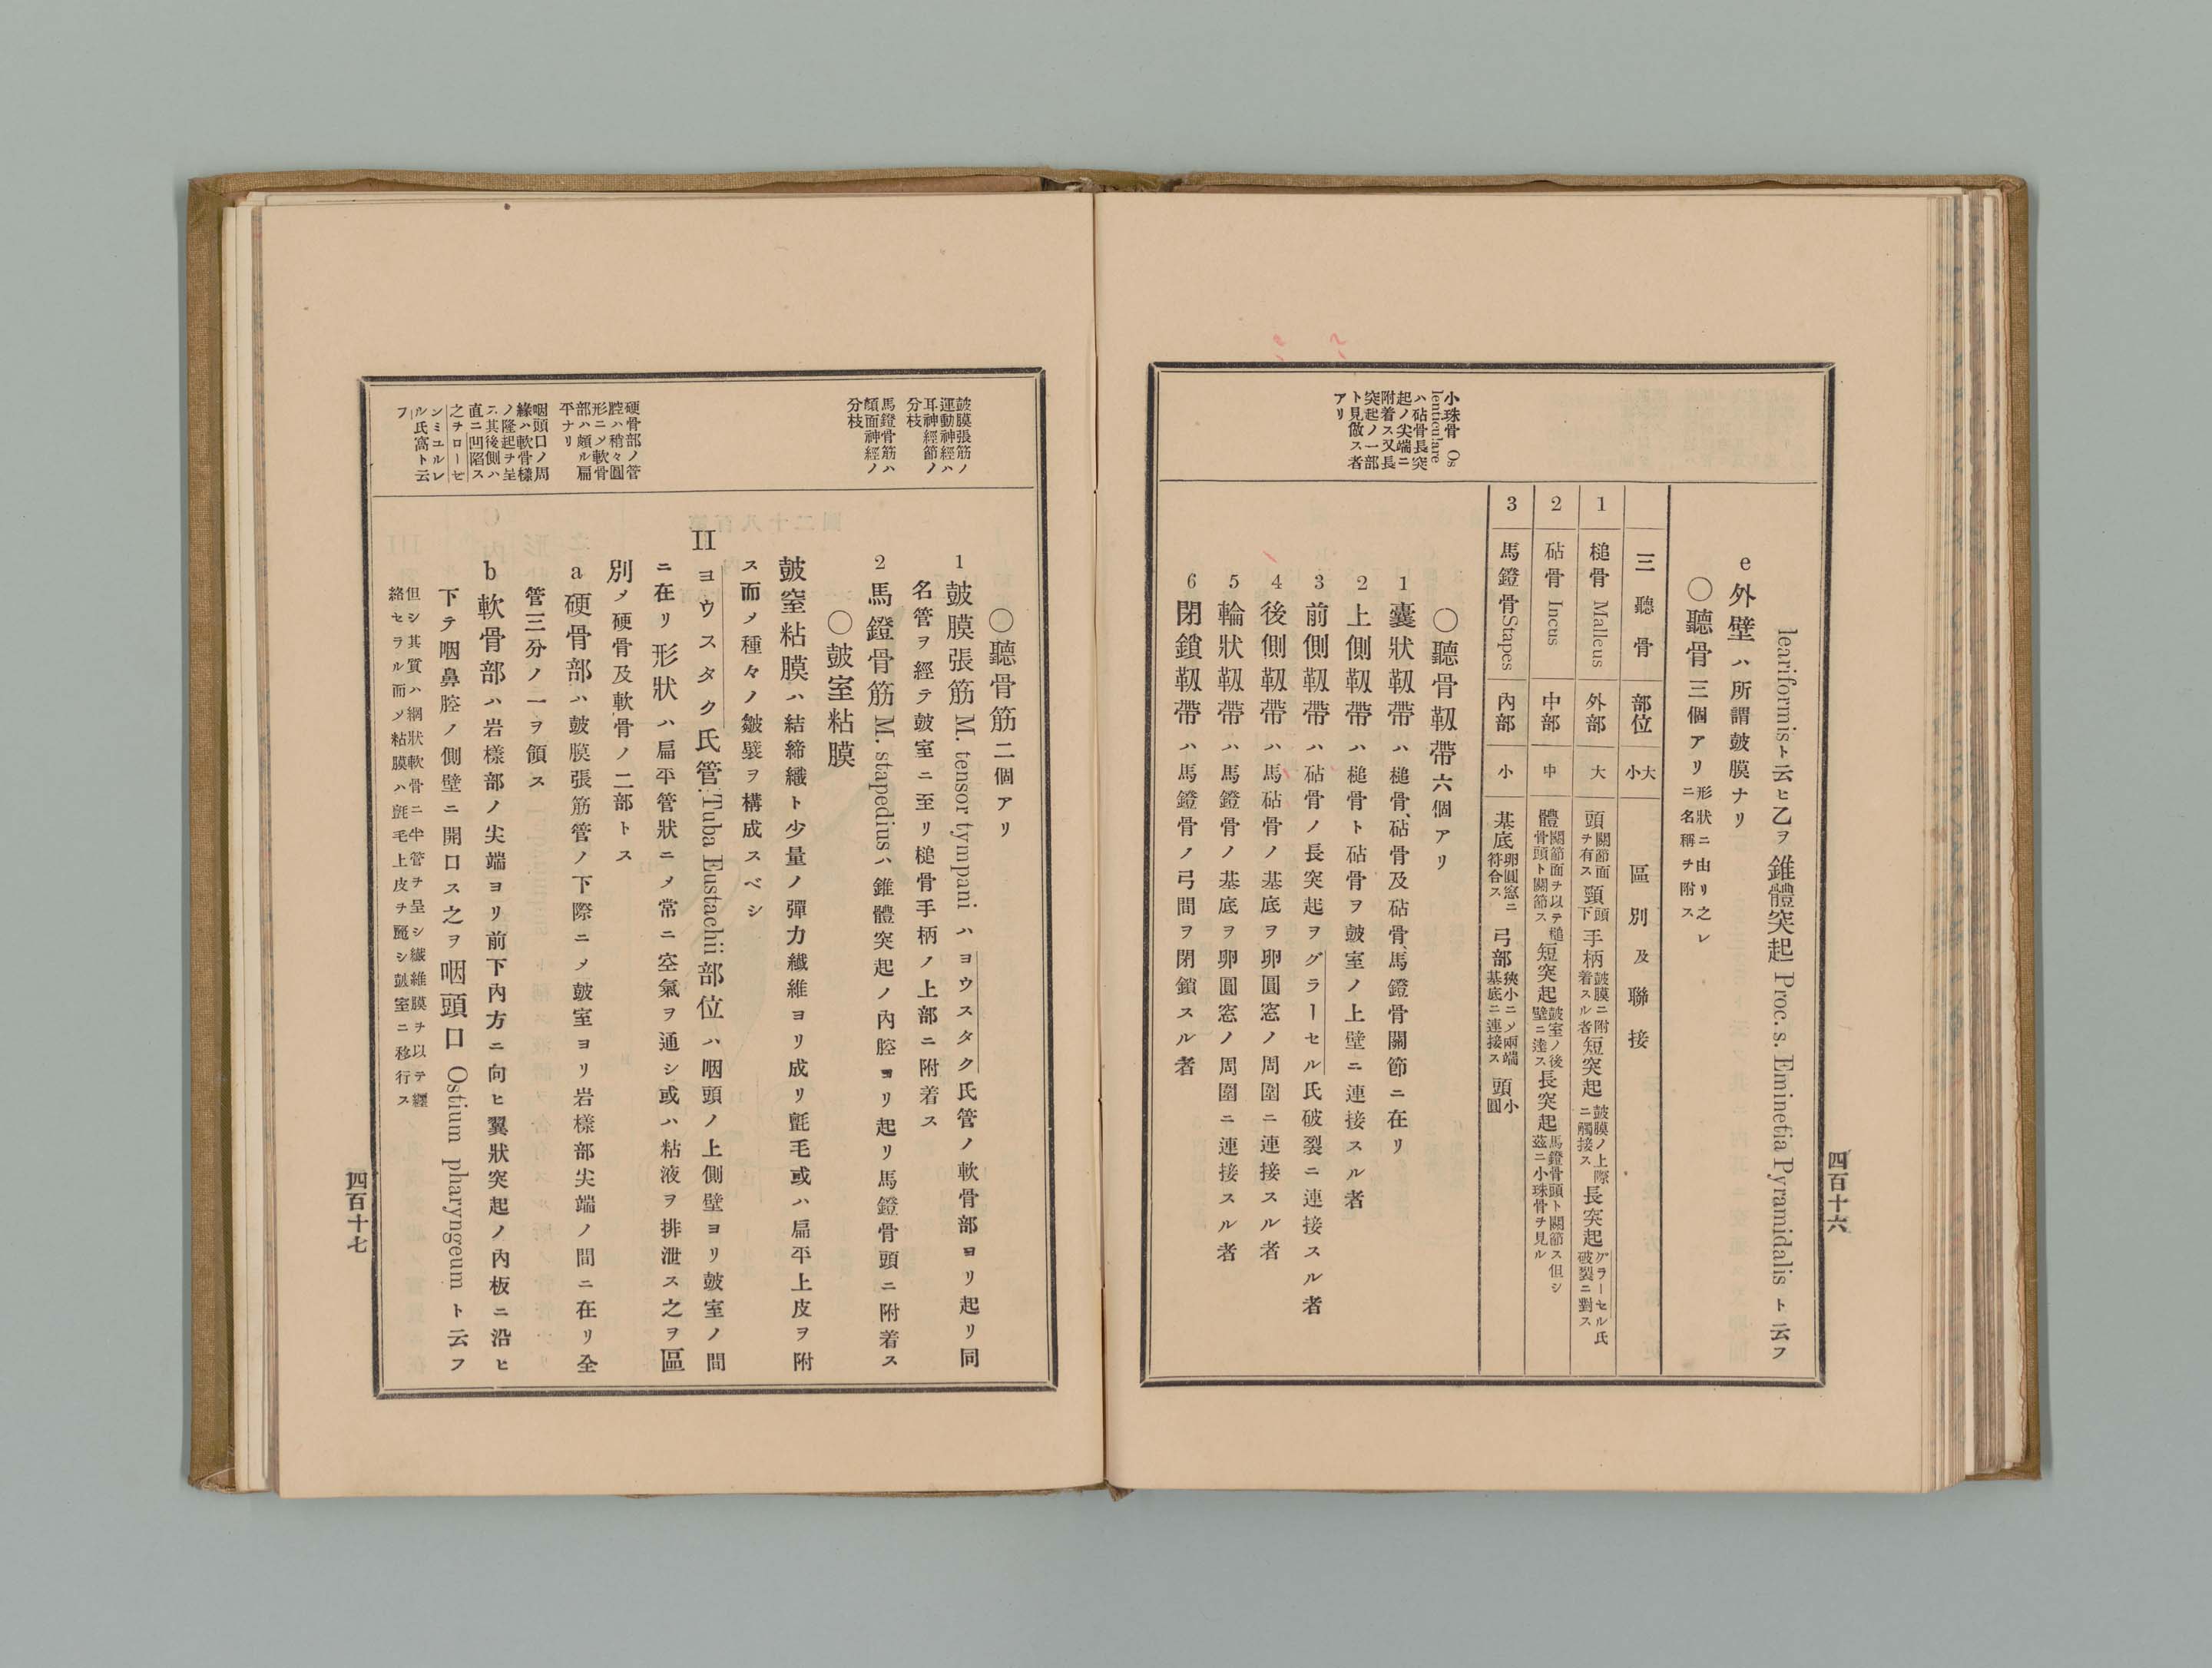 四百十六
小珠骨 Os
lenticulare
ハ砧骨長突
起ノ尖端ニ
附着ス又長
突起ノ一部
ト見做ス者
アリ
leariformisト云ヒ乙ヲ錐體突起 Proc. s. Eminetia Pyramidalis ト云フ
e 外壁ハ所謂皷膜ナリ
〇聽骨三個アリ 形狀ニ由リ之レ
ニ名稱ヲ附ス
三聽骨 部位 大小 區別及聯接
1 槌骨 Malleus 外部 大 頭 關節面ヲ有ス 頸 頭下 手柄 皷膜ニ附着スル者 短突起 皷膜ノ上際ニ觸接ス 長突起 グラーセル氏破裂ニ對ス
2 砧骨 Incus 中部 中 體 關節面ヲ以テ槌骨頭ト關節ス 短突起 皷室ノ後壁ニ達ス 長突起 馬鐙骨頭ト關節ス但シ茲ニ小珠骨ヲ見ル
3 馬鐙骨 Stapes 內部 小 基底 卵圓窓ニ符合ス 弓部 狹小ニメ兩端基底ニ連接ス 頭 小圓
〇聽骨靱帶六個アリ
1 囊狀靱帶ハ槌骨、砧骨及砧骨、馬鐙骨關節ニ在リ
2 上側靱帶ハ槌骨ト砧骨ヲ皷室ノ上壁ニ連接スル者
3 前側靱帶ハ砧骨ノ長突起ヲグラーセル氏破裂ニ連接スル者
4 後側靱帶ハ馬砧骨ノ基底ヲ卵圓窓ノ周圍ニ連接スル者
5 輪狀靱帶ハ馬鐙骨ノ基底ヲ卵圓窓ノ周圍ニ連接スル者
6 閉鎖靱帶ハ馬鐙骨ノ弓間ヲ閉鎖スル者
皷膜張筋ノ
運動神經ハ
耳神經節ノ
分枝
馬鐙骨筋ハ
顏面神經ノ
分枝
硬骨部ノ管
腔ハ稍々圓
形ニメ軟骨
部ハ頗ル扁
平ナリ
咽頭口ノ周
緣ハ軟骨樣
ノ隆起ヲ呈
ス其後側ハ
直ニ凹陷ス
之ヲローセ
ンミユルレ
ル氏窩ト云
フ
〇聽骨筋二個アリ
1 皷膜張筋 M. tensor tympani ハヨウスタク氏管ノ軟骨部ヨリ起リ同
名管ヲ經テ皷室ニ至リ槌骨手柄ノ上部ニ附着ス
2 馬鐙骨筋 M. stapedius ハ錐體突起ノ內腔ヨリ起リ馬鐙骨頭ニ附着ス
〇皷室粘膜
皷窒粘膜ハ結締織ト少量ノ彈力纖維ヨリ成リ氈毛或ハ扁平上皮ヲ附
ス而メ種々ノ皺襞ヲ構成スベシ
II ヨウスタク氏管 Tuba Eustachii 部位ハ咽頭ノ上側壁ヨリ皷室ノ間
ニ在リ形狀ハ扁平管狀ニメ常ニ空氣ヲ通シ或ハ粘液ヲ排泄ス之ヲ區
別メ硬骨及軟骨ノ二部トス
a 硬骨部ハ皷膜張筋管ノ下際ニメ皷室ヨリ岩樣部尖端ノ間ニ在リ全
管三分ノ一ヲ領ス
b 軟骨部ハ岩樣部ノ尖端ヨリ前下內方ニ向ヒ翼狀突起ノ內板ニ沿ヒ
下テ咽鼻腔ノ側壁ニ開口ス之ヲ咽頭口 Ostium pharyngeum ト云フ
但シ其質ハ綱狀軟骨ニ半管ヲ呈シ纎維膜ヲ以テ纒
絡セラル而メ粘膜ハ氈毛上皮ヲ麗シ皷室ニ移行ス
四百十七